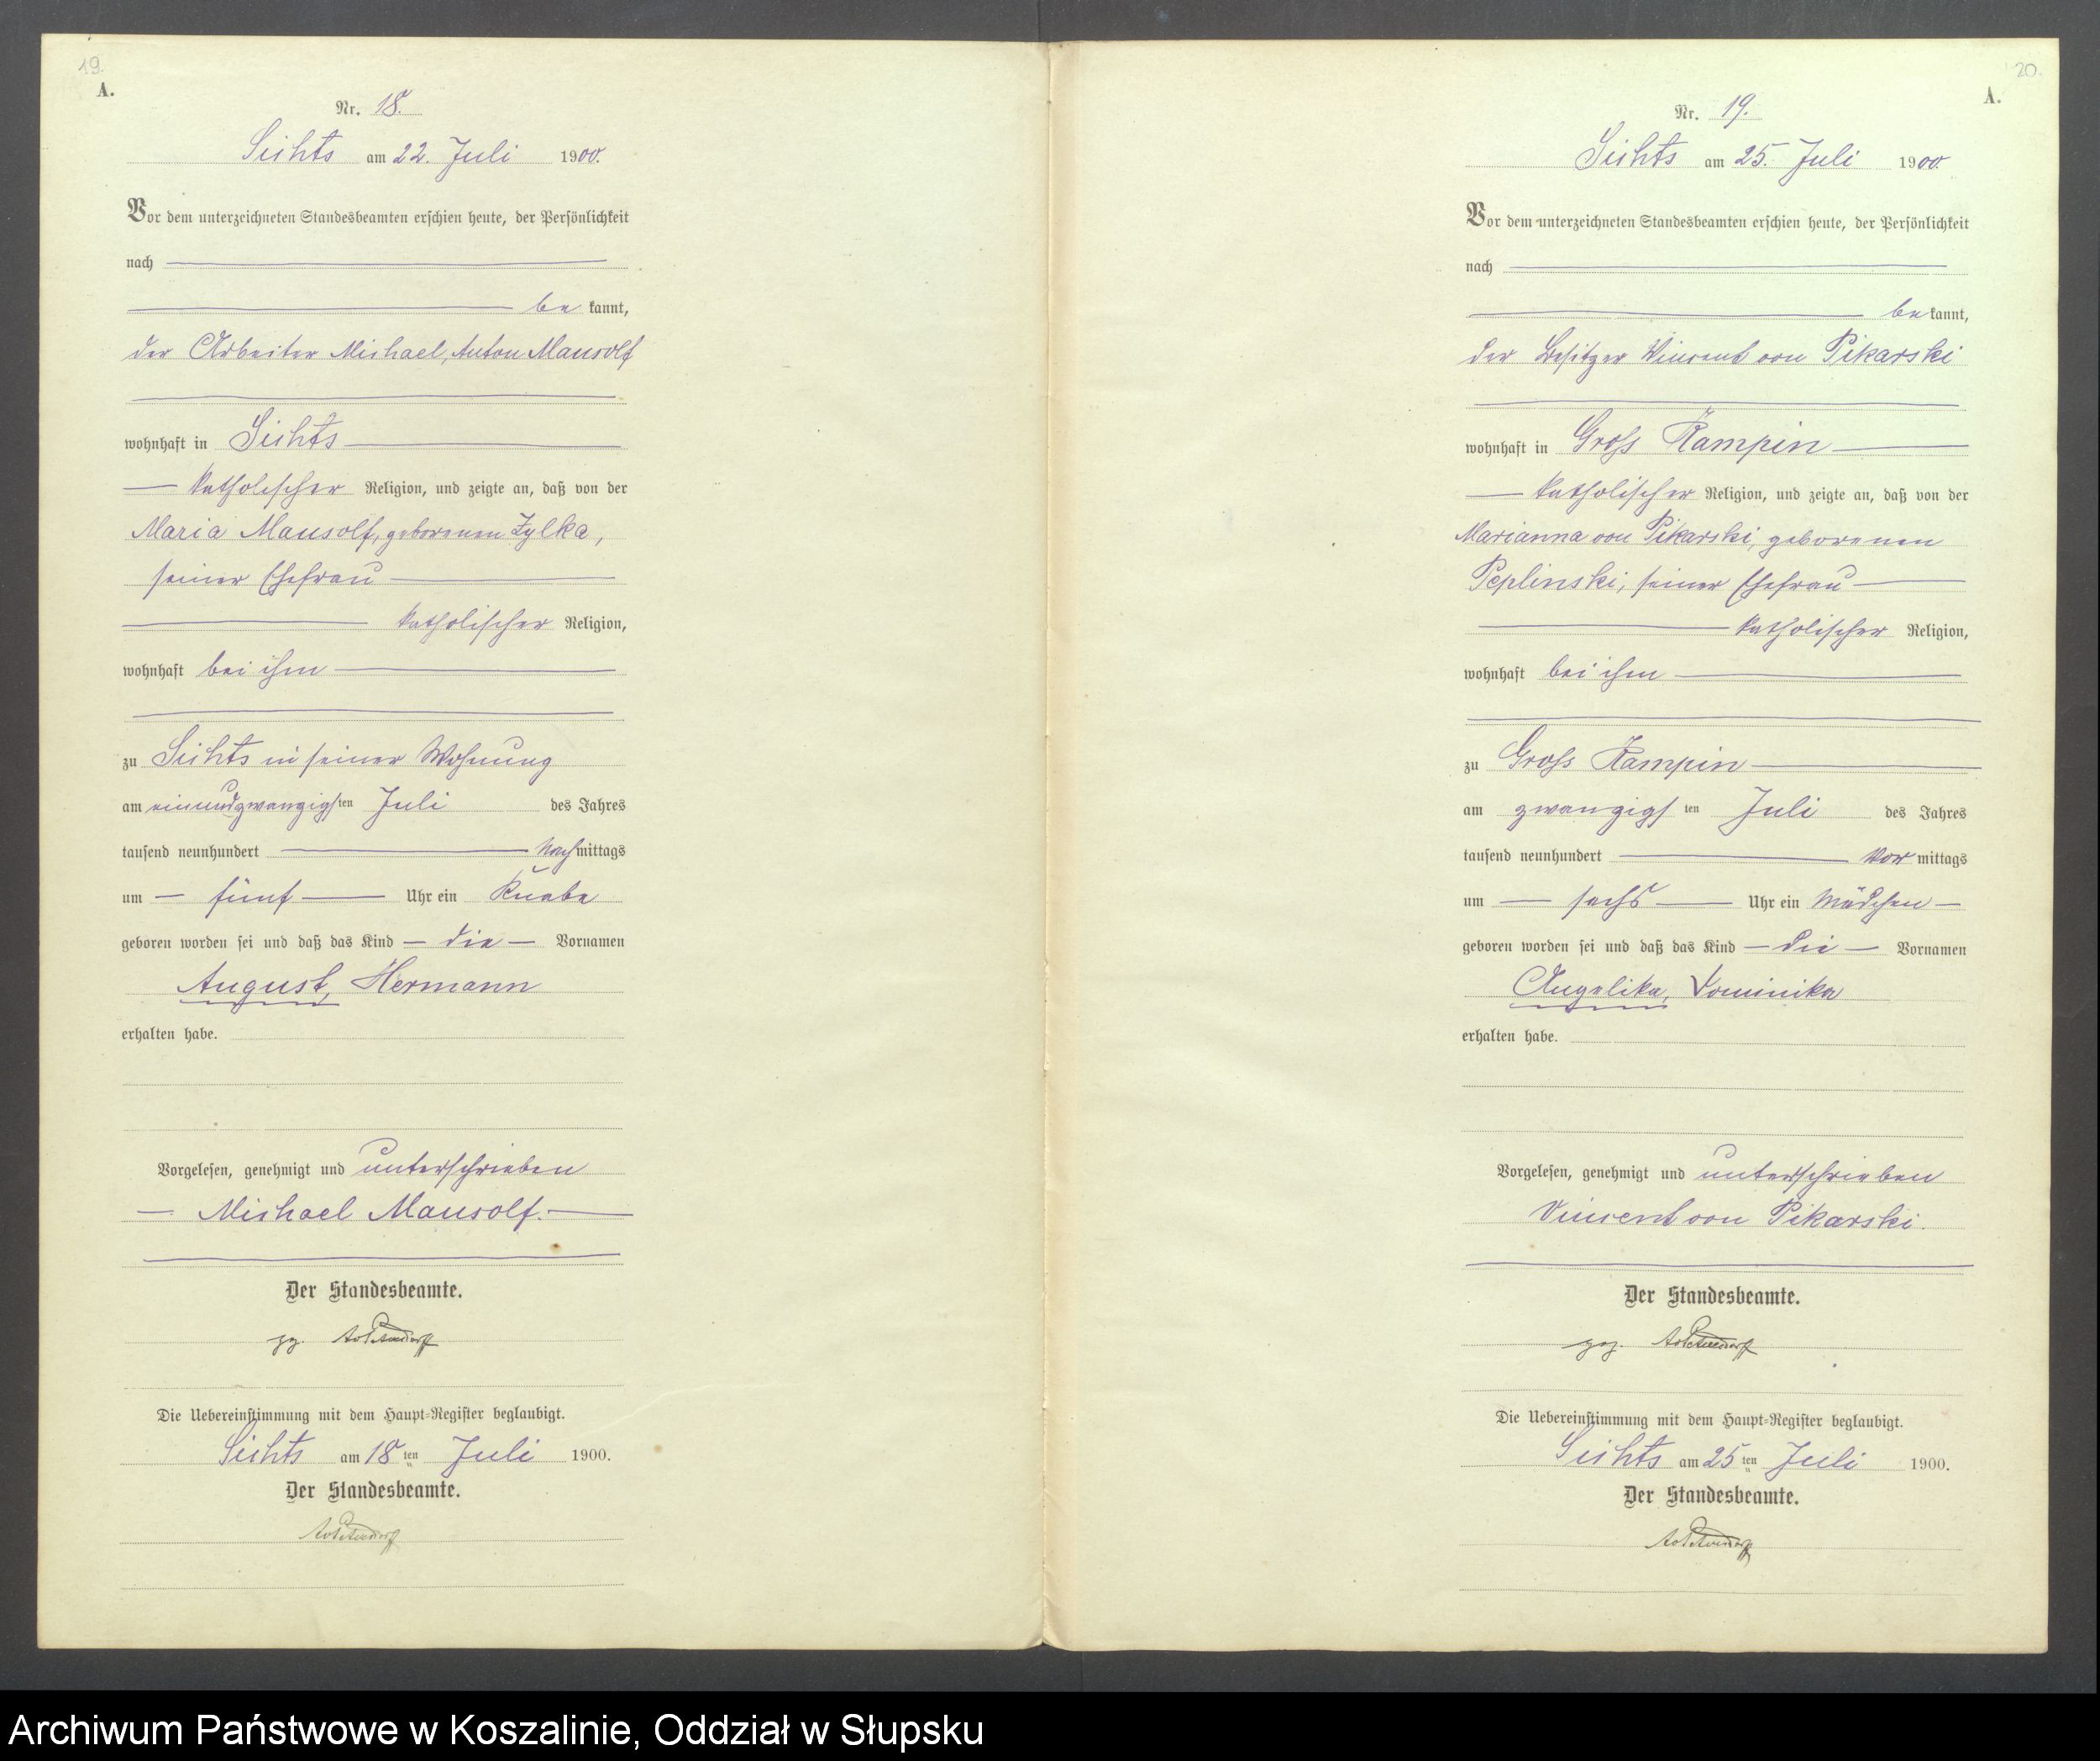 19.
A.
Nr. 18.
Sichts am 22. Juli 1900.
Vor dem unterzeichneten Standesbeamten erschien heute, der Persönlichkeit
nach
be kannt,
der Arbeiter Michael, Anton Mausolf
wohnhaft in Sichts
katholischer Religion, und zeigte an, daß von der
Maria Mausolf, geborenen Zylka,
seiner Ehefrau
katholischer Religion,
wohnhaft bei ihm
zu Sichts in seiner Wohnung
am einundzwanzigsten Juli des Jahres
tausend neunhundert Nachmittags
um fünf Uhr ein Knabe
geboren worden sei und daß das Kind die Vornamen
August, Hermann
erhalten habe.
Vorgelesen, genehmigt und unterschrieben
Michael Mausolf.
Der Standesbeamte.
Die Uebereinstimmung mit dem Haupt-Register beglaubigt.
Sichts am 18ten Juli 1900.
Der Standesbeamte.
20.
A.
Nr. 19.
Sichts am 25. Juli 1900.
Vor dem unterzeichneten Standesbeamten erschien heute, der Persönlichkeit
nach
be kannt,
der Besitzer Vincent von Pikarski
wohnhaft in Gross Rampin
katholischer Religion, und zeigte an, daß von der
Marianna von Pikarski, geborenen
Peplinski, seiner Ehefrau
katholischer Religion,
wohnhaft bei ihm
zu Gross Rampin
am zwanzigsten Juli des Jahres
tausend neunhundert Vor mittags
um sechs Uhr ein Mädchen
geboren worden sei und daß das Kind die Vornamen
Angelika, Dominika
erhalten habe.
Vorgelesen, genehmigt und unterschrieben
Vincent von Pikarski.
Der Standesbeamte.
gez.
Die Uebereinstimmung mit dem Haupt-Register beglaubigt.
Sichts am 25ten Juli 1900.
Der Standesbeamte.
Archiwum Państwowe w Koszalinie, Oddział w Słupsku